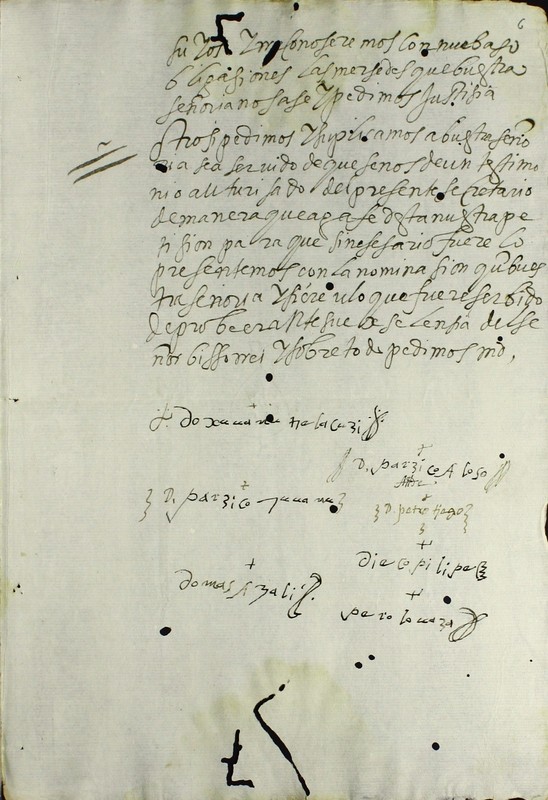 6
su Yos Y Reconoseremos con nuebas o
bligasiones las mersedes que buestra
señoria nos ase Y pedimos Justisia
Otrosi pedimos Y suplicamos a buestra seño
ria sea servido de que se nos de un testimo
nio auturisado del presente secretario
de manera que aga fe desta nuestra pe
tision para que si nesesario fuere lo
presentemos con la nominasion que bues
tra señoria Ysiere u lo que fuere serbido
de probeer ante su exselensia del se
ñor bissorrei Y sobre todo pedimos
D. parzico Aloso
D. parzico Juuanu
D. petro tiago
diego pilipe
domas
pero lomaza